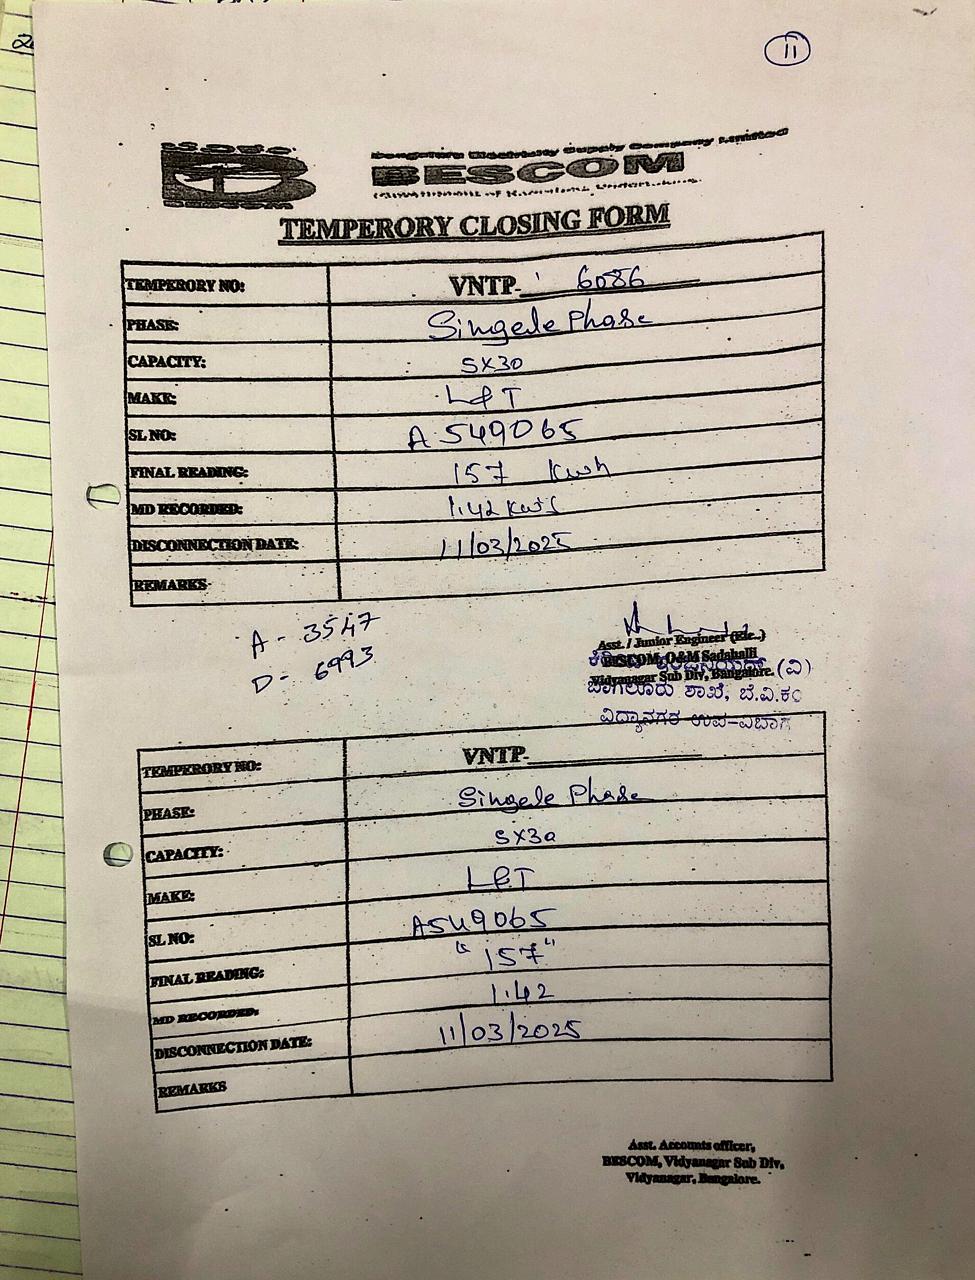 11
Bangalore Electricity Supply Company Limited
BESCOM
BESCOM
TEMPERORY CLOSING FORM
TEMPERORY NO: VNTP- 6086
PHASE: Singele Phase
CAPACITY: 5X30
MAKE: L&T
SL NO: A 549065
FINAL READING: 157 Kwh
MD RECORDED: 1.42 Kwts
DISCONNECTION DATE: 11/03/2025
REMARKS
A - 3547
D - 6993
Asst. / Junior Engineer (Ele..)
BESCOM, O&M Sadahalli
Vidyanagar Sub Div, Bangalore.
(ವಿ)
ಬಾಗಲೂರು ಶಾಖೆ, ಬೆ.ವಿ.ಕಂ
ವಿದ್ಯಾನಗರ ಉಪ-ವಿಭಾಗ
TEMPERORY NO: VNTP-
PHASE: Singele Phase
CAPACITY: 5X30
MAKE: L&T
SL NO: A549065
FINAL READING: "157"
MD RECORDED: 1.42
DISCONNECTION DATE: 11/03/2025
REMARKS
Asst. Accounts officer,
BESCOM, Vidyanagar Sub Div,
Vidyanagar, Bangalore.